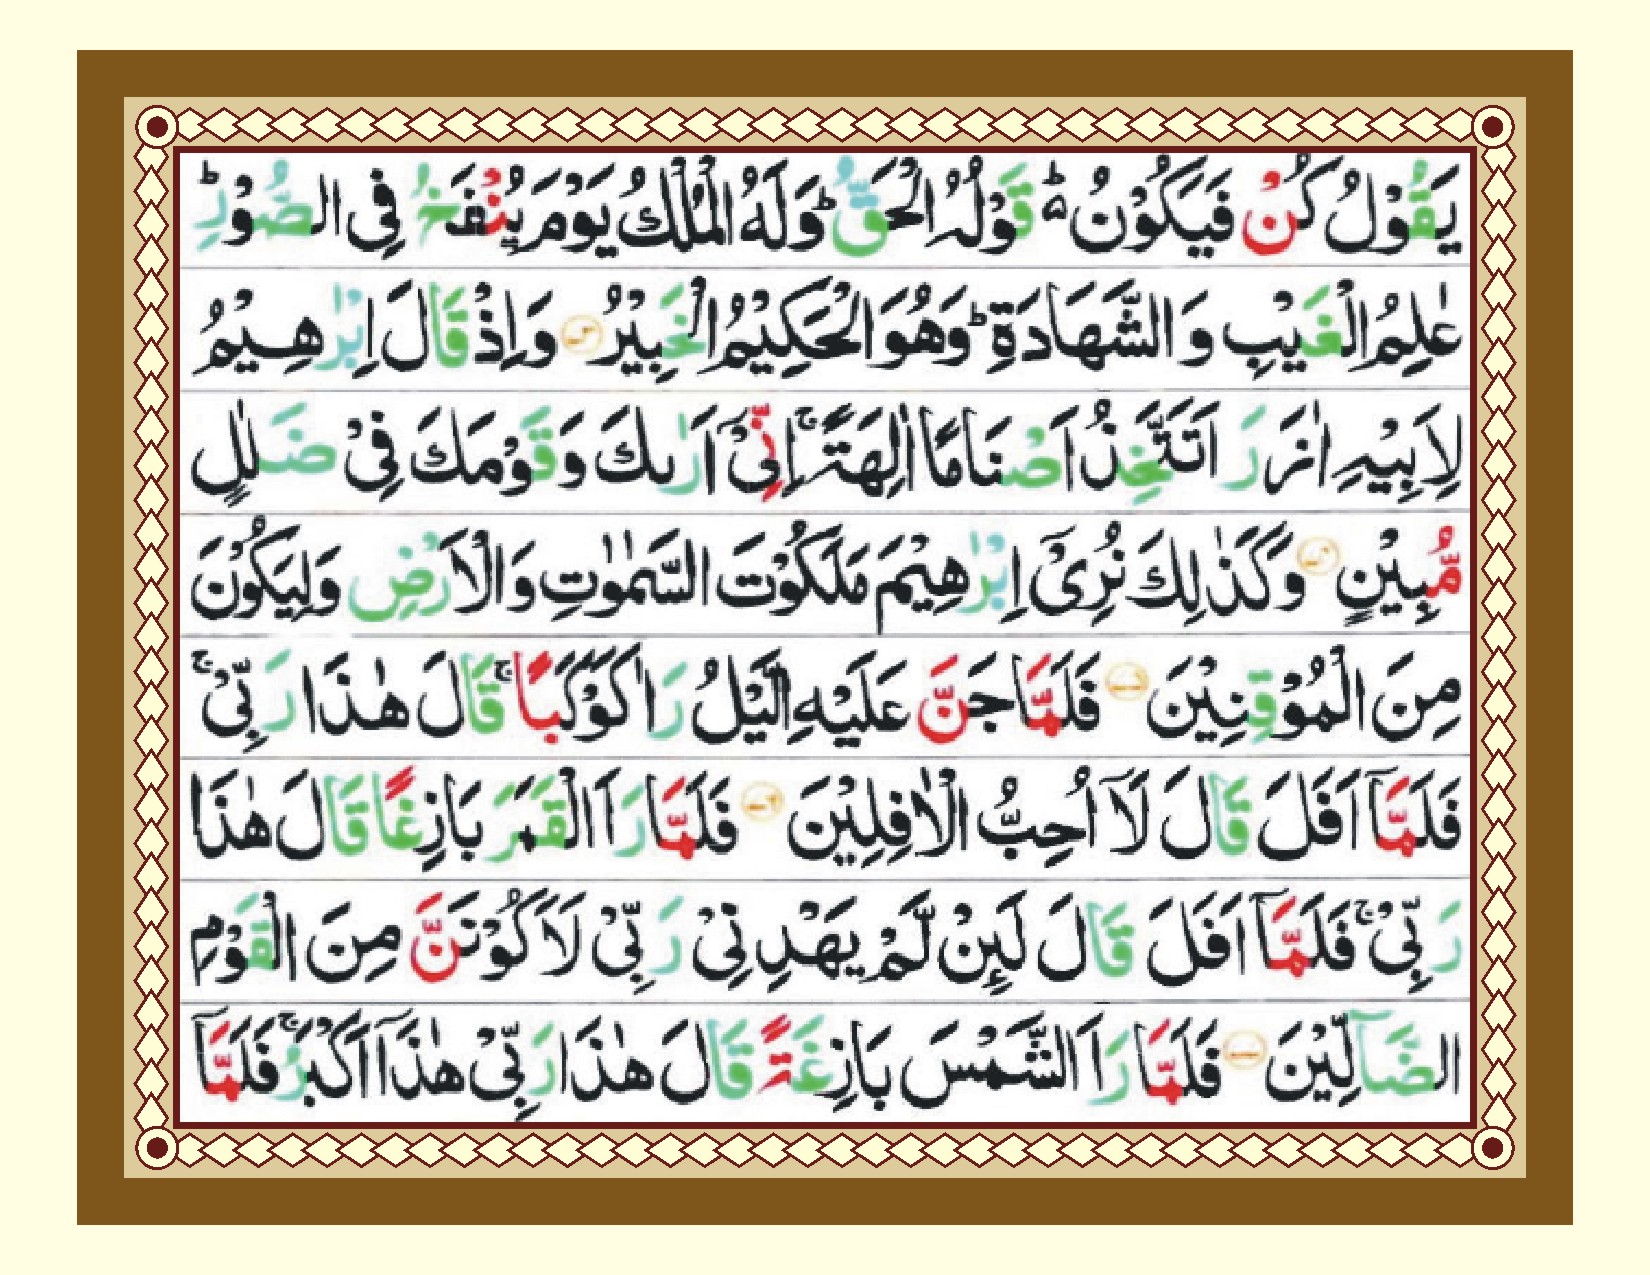 يَقُوۡلُ كُنۡ فَيَكُوۡنُ ؕ۬ قَوۡلُهُ الۡحَقُّ‌ ؕ وَلَهُ الۡمُلۡكُ يَوۡمَ يُنۡفَخُ فِى الصُّوۡرِ‌ ؕ
عٰلِمُ الۡغَيۡبِ وَ الشَّهَادَةِ‌ ؕ وَهُوَ الۡحَكِيۡمُ الۡخَبِيۡرُ ۝ وَاِذۡ قَالَ اِبۡرٰهِيۡمُ
لِاَبِيۡهِ اٰزَرَ اَتَتَّخِذُ اَصۡنَامًا اٰلِهَةً‌ ۚ اِنِّىۡۤ اَرٰٮكَ وَقَوۡمَكَ فِىۡ ضَلٰلٍ
مُّبِيۡنٍ ۝ وَكَذٰلِكَ نُرِىۡۤ اِبۡرٰهِيۡمَ مَلَكُوۡتَ السَّمٰوٰتِ وَالۡاَرۡضِ وَلِيَكُوۡنَ
مِنَ الۡمُوۡقِنِيۡنَ ۝ فَلَمَّا جَنَّ عَلَيۡهِ الَّيۡلُ رَاٰ كَوۡكَبًا‌ ۚ قَالَ هٰذَا رَبِّىۡ‌ ۚ
فَلَمَّاۤ اَفَلَ قَالَ لَاۤ اُحِبُّ الۡاٰفِلِيۡنَ ۝ فَلَمَّا رَاَ الۡقَمَرَ بَازِغًا قَالَ هٰذَا
رَبِّىۡ‌ ۚ فَلَمَّاۤ اَفَلَ قَالَ لَئِنۡ لَّمۡ يَهۡدِنِىۡ رَبِّىۡ لَاَكُوۡنَنَّ مِنَ الۡقَوۡمِ
الضَّآلِّيۡنَ ۝ فَلَمَّا رَاَ الشَّمۡسَ بَازِغَةً قَالَ هٰذَا رَبِّىۡ هٰذَاۤ اَكۡبَرُ‌ ۚ فَلَمَّاۤ